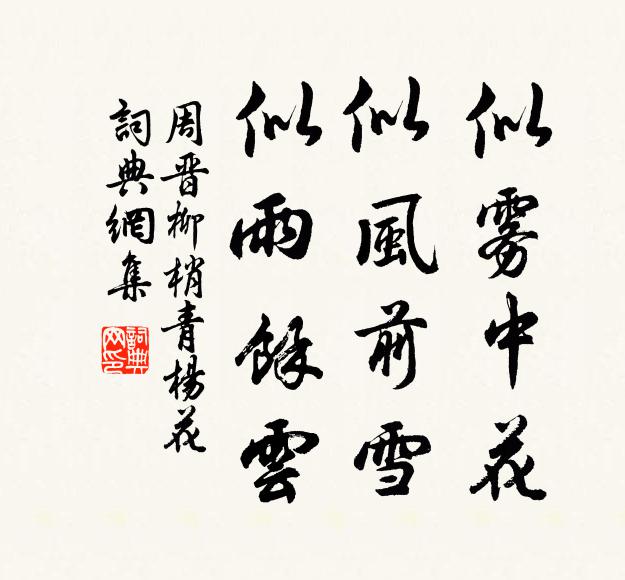 似霧中花
似風前雪
似雨餘雲
周晋柳梢青楊花
詞典網集
詞典網印